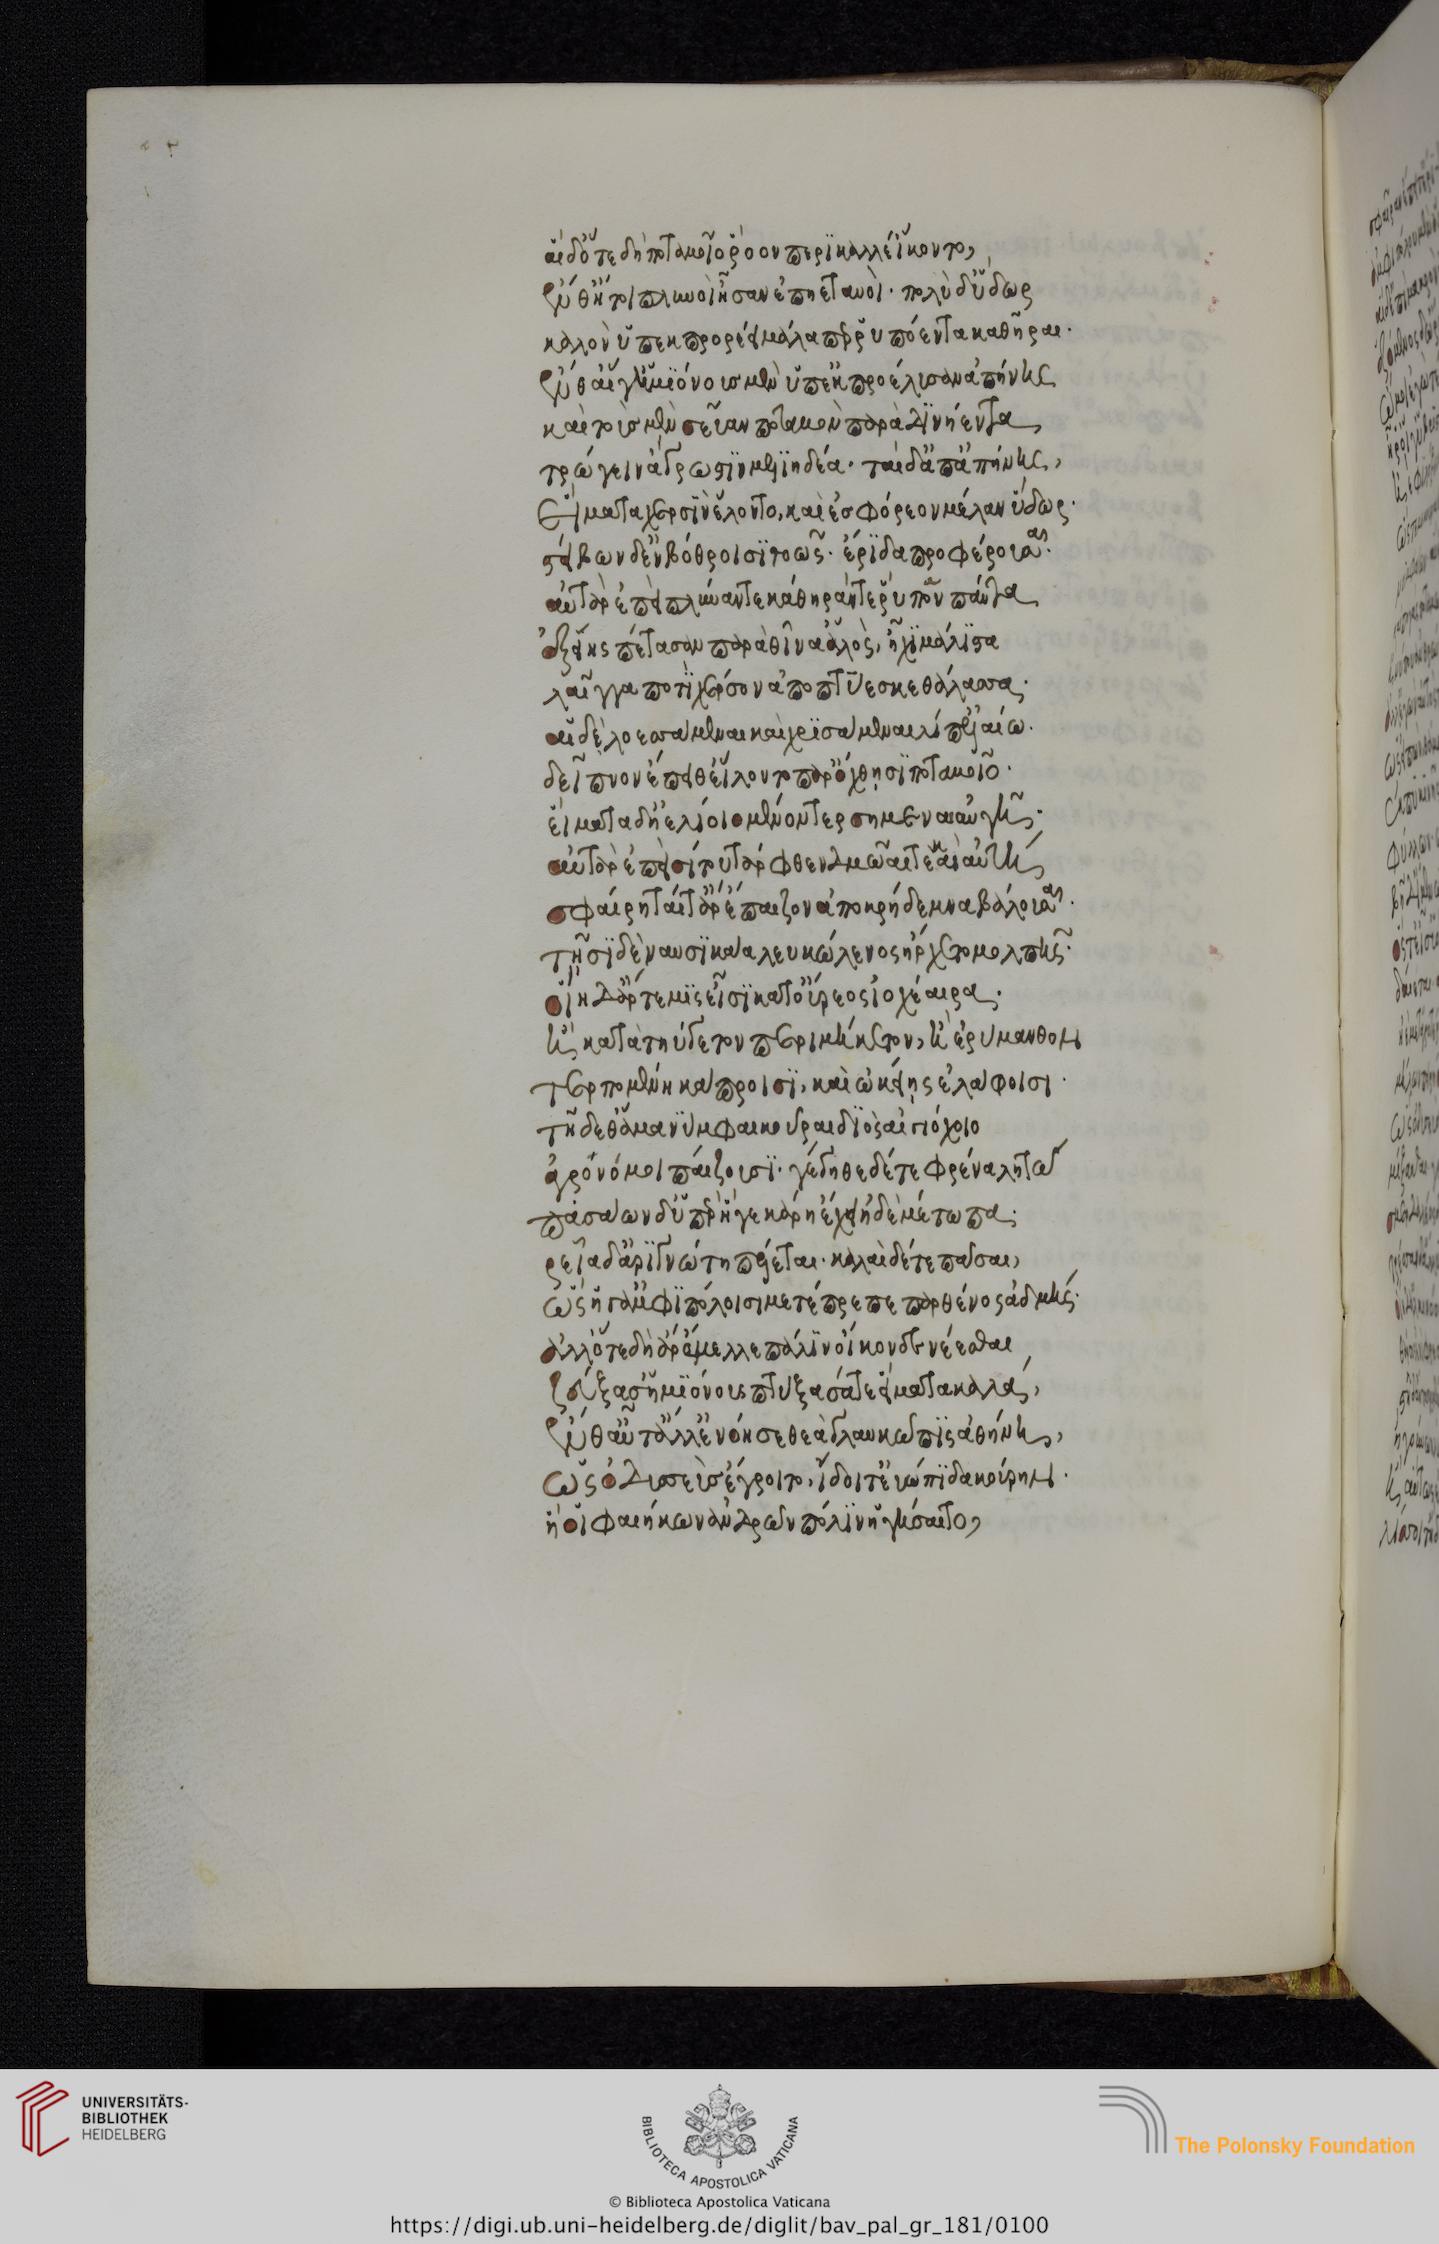 αἱ δ' ὅτε δὴ ποταμοῖο ῥόον περικαλλέ' ἵκοντο,
ἔνθ' ἤτοι πλυνοὶ ἦσαν ἐπηετανοὶ· πολὺ δ' ὕδωρ
καλὸν ὑπεκπρορέει μάλα περ ῥυπόεντα καθῆραι·
ἔνθ' αἵ γ' ἡμϊόνους μὲν ὑπεκπροέλυσαν ἀπήνης
καὶ τοὺς μὲν σεῦαν ποταμὸν παρὰ δϊνήεντα
τρώγειν ἄγρωστϊν μελϊηδέα· ταὶ δ' ἀπ' ἀπήνης,
εἵματα χερσὶν ἕλοντο, καὶ ἐσφόρεον μέλαν ὕδωρ·
στεῖβων δ' ἐν βόθροισϊ θοῶς· ἔρϊδα προφέρουσαι·
αὐτὰρ ἐπεὶ πλύναντε κάθηράν τε ῥύπα πάντα
ἑξείης πέτασαν παρὰ θῖνα ἁλὸς, ἧχϊ μάλϊστα
λάϊγγα ποτϊ χέρσον ἀποπτύεσκε θάλασσα·
αἱ δὲ λοεσσάμεναι καὶ χρϊσάμεναι λίπ' ἐλαίω·
δεῖπνον ἔπειθ' εἵλοντο παρ' ὄχθησϊ ποταμοῖο·
εἵματα δ' ἠελίοιο μένον τερσημεναι αὐγῆ·
αὐτὰρ ἐπεὶ σίτου τάρφθεν δμωαί τε καὶ αὐτή
σφαίρη ταί τ' ἄρ' ἔπαιζον ἀποκρήδεμνα βαλουσαι·
τῆσϊ δὲ ναυσϊκάα λευκώλενος ἤρχετο μολπῆς·
οἵη δ' ἄρτεμϊς εἶσϊ κατ' οὔρεος ἰοχέαιρα·
ἢ κατὰ τηύγετον περιμήκετον, ἢ ἐρυμανθον
τερπομένη κάπροισϊ, καὶ ὠκείης ἐλάφοισι·
τῆ δέ θ' ἅμα νύμφαι κοῦραι δϊὸς αἰγιόχοιο
ἀγρονόμοι παίζουσϊ· γέγηθε δέ τε φρένα λητώ
πασάων δ' ὑπὲρ ἥγε κάρη ἔχει ἠδὲ μέτωπα·
ῥεῖα δ' ἀρϊγνώτη πέλεται· καλαὶ δέ τε πᾶσαι,
ὣς ἥγ' ἀμφϊπόλοισι μετέπρεπε παρθένος ἀδμής·
ἀλλ' ὅτε δὴ ἄρ' ἔμελλε πάλϊν οἶκονδε νέεσθαι
ζεύξασ' ἡμϊόνους πτύξασά τε εἵματα καλά,
ἔνθ' αὖτ' ἄλλ' ἐνόησε θεὰ γλαυκῶπϊς ἀθήνη,
ὡς ὀδυσεὺς ἔγροιτο, ἴδοι τ' εὐώπϊδα κούρην·
ἥ οἱ φαιήκων ἀνδρῶν πόλϊν ἡγήσαιτο,
UNIVERSITÄTS-
BIBLIOTHEK
HEIDELBERG
BIBLIOTECA APOSTOLICA VATICANA
The Polonsky Foundation
© Biblioteca Apostolica Vaticana
https://digi.ub.uni-heidelberg.de/diglit/bav_pal_gr_181/0100